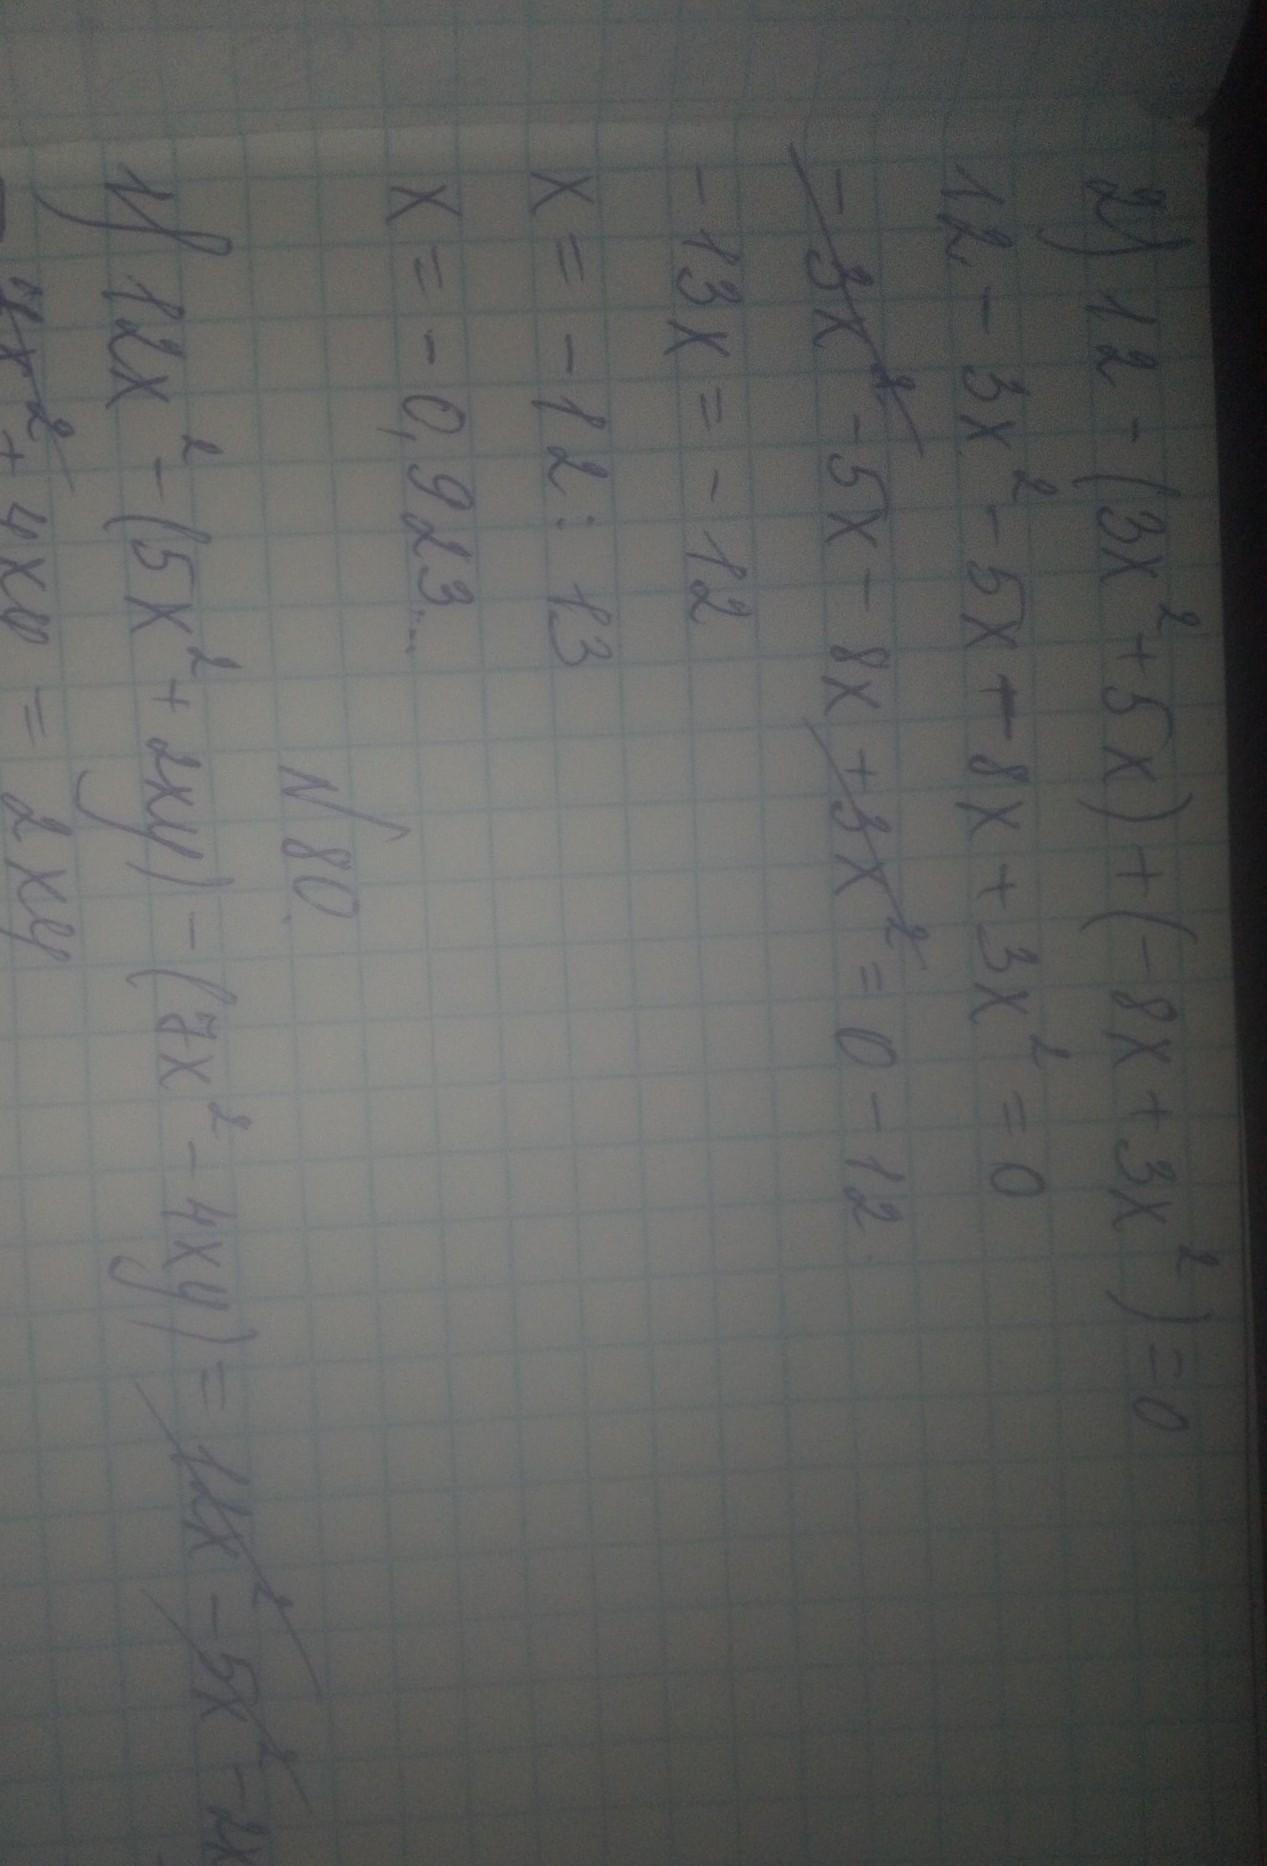 2) 12 - (3x² + 5x) + (-8x + 3x²) = 0
12 - 3x² - 5x - 8x + 3x² = 0
-3x² - 5x - 8x + 3x² = 0 - 12
-13x = -12
x = -12 : 13
x = -0,923...
N 80.
1) 12x² - (5x² + 2xy) - (7x² - 4xy) = 12x² - 5x² - 2x
- 7x² + 4xy = 2xy